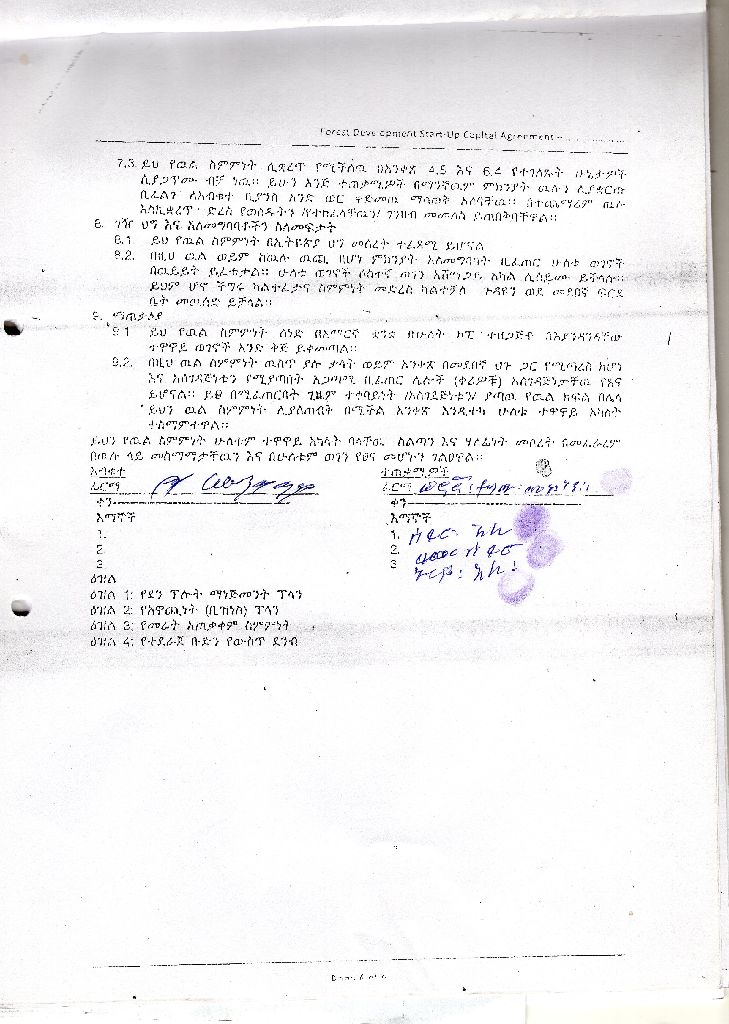 Forest Development Start-Up Capital Agreement –
7.3. ይህ የዉል ስምምነት ሊቋረጥ የሚችለዉ በአንቀጽ 4.5 እና 6.4 የተገለጹት ሁኔታዎች
ሲያጋጥሙ ብቻ ነዉ። ይሁን እንጅ ተጠቃሚዎች በማንኛዉም ምክንያት ዉሉን ሊያቋርጡ
ቢፈልጉ ለአብቁተ ቢያንስ አንድ ወር ቀድመዉ ማሳወቅ አለባቸዉ። በተጨማሪም ዉሉ
እስኪቋረጥ ድረስ የወሰዱትን ገንዘብ መመለስ ይጠበቅባቸዋል።
8. ገዥ ህግ እና አለመግባባቶችን ስለመፍታት
8.1. ይህ የዉል ስምምነት በኢትዮጵያ ህግ መሰረት ተፈጻሚ ይሆናል
8.2. በዚህ ዉል ወይም ከዉሉ ዉጪ በሆነ ምክንያት አለመግባባት ቢፈጠር ሁለቱ ወገኖች
በዉይይት ይፈቱታል። ሁለቱ ወገኖች ሶስተኛ ወገን አሸማጋይ አካል ሊሰይሙ ይችላሉ።
ይህም ሆኖ ችግሩ ካልተፈታና ስምምነት መድረስ ካልተቻለ ጉዳዩን ወደ መደበኛ ፍርድ
ቤት መዉሰድ ይቻላል።
9. ማጠቃለያ
9.1 ይህ የዉል ስምምነት ሰነድ በአማርኛ ቋንቋ በሁለት ኮፒ ተዘጋጅቶ በእያንዳንዳቸው
ተዋዋይ ወገኖች አንድ ቅጅ ይቀመጣል።
9.2. በዚህ ዉል ስምምነት ዉስጥ ያሉ ቃላት ወይም አንቀጽ በመደበኛ ህጉ ጋር የሚጣረስ ከሆነ
እና አስገዳጅነቱን የሚያጣበት አጋጣሚ ቢፈጠር ሌሎች (ቀሪዎች) አስገዳጅነታቸዉ የጸና
ይሆናል። ይህ በሚፈጠርበት ጊዜም ተቀባይነት /አስገዳጅነቱን/ ያጣዉ የዉል ክፍል በሌላ
ይህን ዉል ስምምነት ሊያስጠብቅ በሚችል አንቀጽ እንዲተካ ሁለቱ ተዋዋይ አካላት
ተስማምተዋል።
ይህን የዉል ስምምነት ሁለቱም ተዋዋይ አካላት ባላቸዉ ስልጣን እና ሃላፊነት መሰረት በመፈራረም
በዉሉ ላይ መስማማታቸዉን እና በሁለቱም ወገን የፀና መሆኑን ገልፀዋል።
አብቁተ ተጠቃሚዎች
ፊርማ ፊርማ
ቀን ቀን
እማኞች እማኞች
1. 1.
2. 2.
3 3
ዕዝል
ዕዝል 1: የደን ፕሎት ማኔጅመንት ፕላን
ዕዝል 2: የአዋጪነት (ቢዝነስ) ፕላን
ዕዝል 3: የመሬት አጠቃቀም ስምምነት
ዕዝል 4: የተደራጀ ቡድን የውስጥ ደንብ